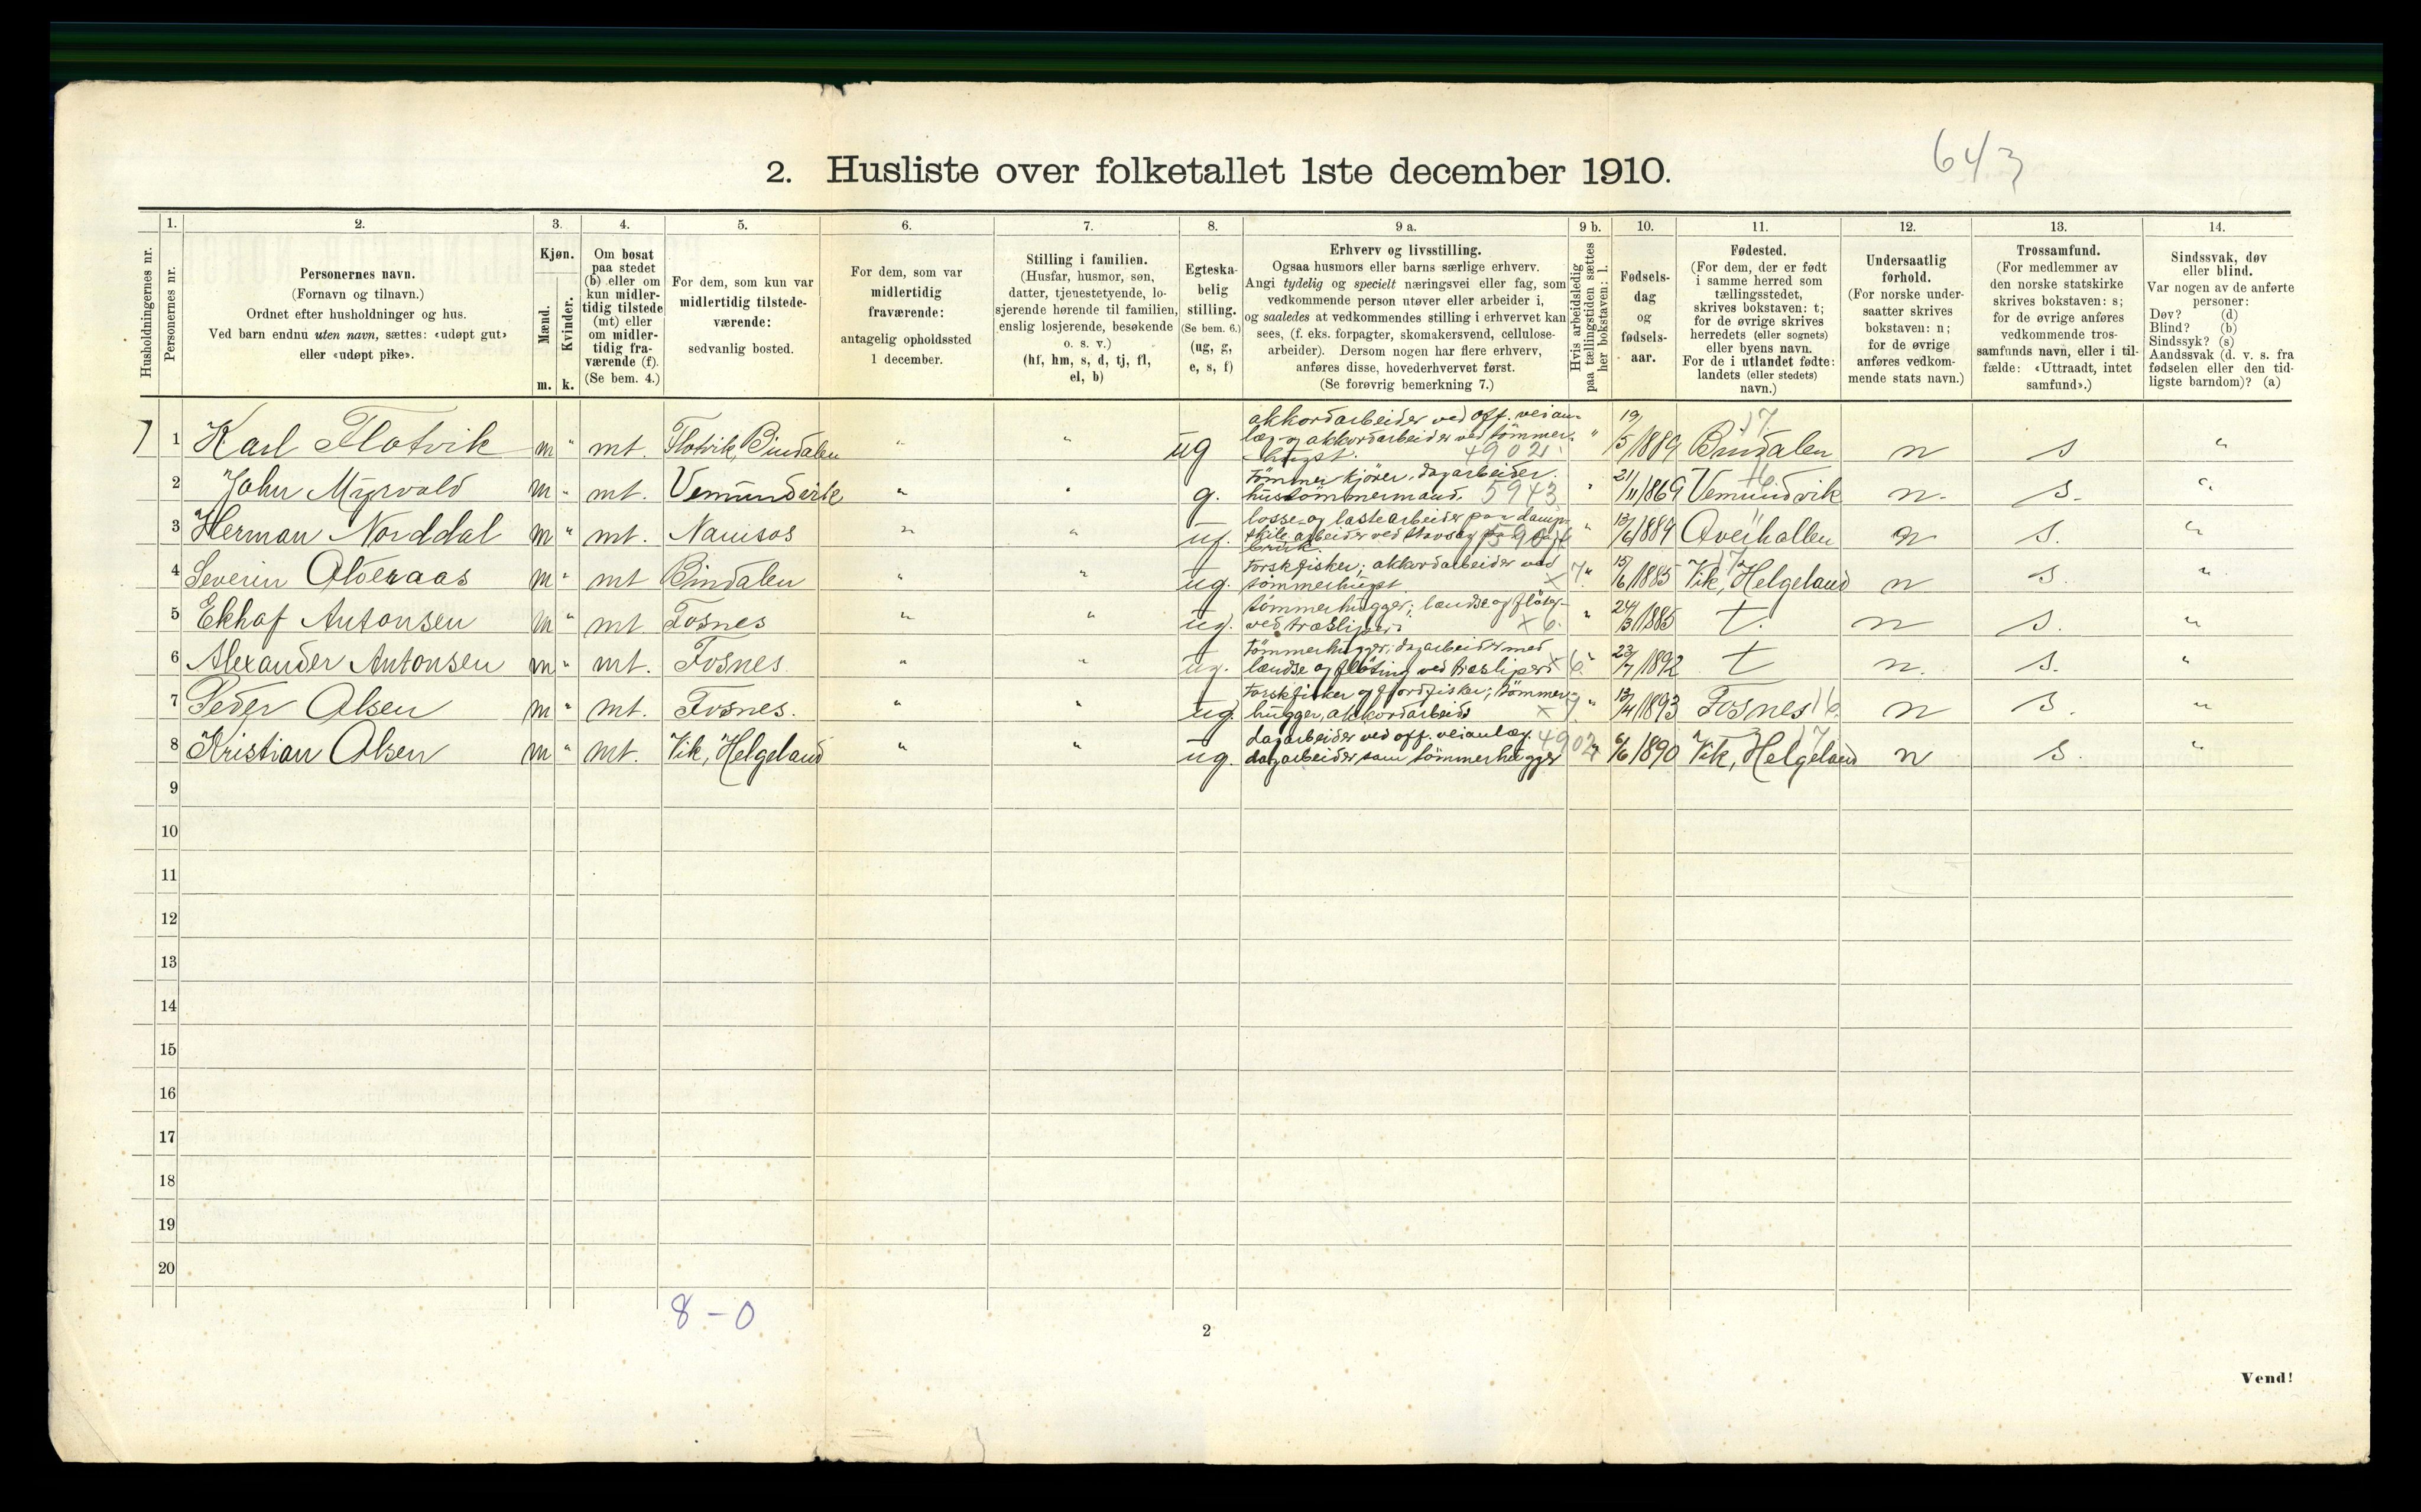 643
2. Husliste over folketallet 1ste december 1910.
1. 2. 3. 4. 5. 6. 7. 8. 9 a. 9 b. 10. 11. 12. 13. 14.
Husholdningernes nr.
Personernes nr.
Personernes navn.
(Fornavn og tilnavn.)
Ordnet efter husholdninger og hus.
Ved barn endnu uten navn, sættes: «udøpt gut»
eller «udøpt pike».
Kjøn.
Mænd.
Kvinder.
m. k.
Om bosat
paa stedet
(b) eller om
kun midler-
tidig tilstede
(mt) eller
om midler-
tidig fra-
værende (f).
(Se bem. 4.)
For dem, som kun var
midlertidig tilstede-
værende:
sedvanlig bosted.
For dem, som var
midlertidig
fraværende:
antagelig opholdssted
1 december.
Stilling i familien.
(Husfar, husmor, søn,
datter, tjenestetyende, lo-
sjerende hørende til familien,
enslig losjerende, besøkende
o. s. v.)
(hf, hm, s, d, tj, fl,
el, b)
Egteska-
belig
stilling.
(Se bem. 6.)
(ug, g,
e, s, f)
Erhverv og livsstilling.
Ogsaa husmors eller barns særlige erhverv.
Angi tydelig og specielt næringsvei eller fag, som
vedkommende person utøver eller arbeider i,
og saaledes at vedkommendes stilling i erhvervet kan
sees, (f. eks. forpagter, skomakersvend, cellulose-
arbeider). Dersom nogen har flere erhverv,
anføres disse, hovederhvervet først.
(Se forøvrig bemerkning 7.)
Hvis arbeidsledig
paa tællingstiden sættes
her bokstaven: l.
Fødsels-
dag
og
fødsels-
aar.
Fødested.
(For dem, der er født
i samme herred som
tællingsstedet,
skrives bokstaven: t;
for de øvrige skrives
herredets (eller sognets)
eller byens navn.
For de i utlandet fødte:
landets (eller stedets)
navn.)
Undersaatlig
forhold.
(For norske under-
saatter skrives
bokstaven: n;
for de øvrige
anføres vedkom-
mende stats navn.)
Trossamfund.
(For medlemmer av
den norske statskirke
skrives bokstaven: s;
for de øvrige anføres
vedkommende tros-
samfunds navn, eller i til-
fælde: «Uttraadt, intet
samfund».)
Sindssvak, døv
eller blind.
Var nogen av de anførte
personer:
Døv? (d)
Blind? (b)
Sindssyk? (s)
Aandssvak (d. v. s. fra
fødselen eller den tid-
ligste barndom)? (a)
1 Karl Flotvik m " mt. Flotvik, Bindalen " " ug akkordarbeider ved off. veian-
læg og akkordarbeider ved tømmer-
hugst. 4902 " 19/5 1889 Bindalen 17. n s "
2 John Myrvold m " mt. Vemundvik " " g. Tømmerkjører, dagarbeider.
hustømmermand. 5943 " 21/11 1869 Vemundvik 16. n. s. "
3 Herman Norddal m " mt. Namsos " " ug. losse og lastearbeider paa damp-
skib. arbeider ved
bruk. " 13/6 1884 Overhallen n s. "
4 Severin m " mt Bindalen " " ug. Torskfisker; akkordarbeider ved
tømmerhugst x 7. " 15/6 1885 Vik, Helgeland 17 n s. "
5 Ekhof Antonsen m " mt Fosnes " " ug. tømmerhugger; lændse og fløt-
ved træsliperi x 6. " 24/3 1885 t. n s. "
6 Alexander Antonsen m " mt. Fosnes " " ug. Tømmerhugger; dagarbeider med
lændse og fløting ved træsliperi x 6. " 23/7 1892 t n. s. "
7 Peder Olsen m " mt. Fosnes. " " ug. Torskfisker og fjordfisker; tømmer-
hugger, akkordarbeid x 7 " 13/4 1893 Fosnes 16. n s. "
8 Kristian Olsen m " mt. Vik, Helgeland " " ug. dagarbeider ved off. veianlæg. 4902
dagarbeider som tømmerhugger " 6/6 1890 Vik, Helgeland 17 n s. "
9
10
11
12
13
14
15
16
17
18
19
20
8 - 0
2
Vend!